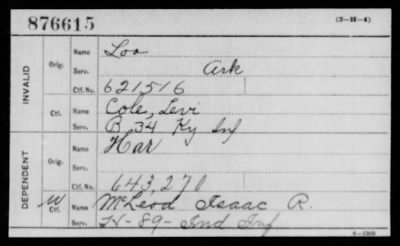 876615 (3-H-4)
INVALID
Orig. Name Loo
Serv. Ark
Ctf. No. 621516
Ctf. Name Cole, Levi
Serv. B, 34 Ky Inf
DEPENDENT
Orig. Name Har
Serv.
Ctf. No. 643,270
W Ctf. Name McLeod Isaac R.
Serv. H-89-Ind Inf